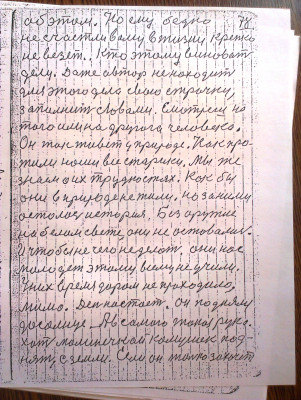 об этом. Но ему бедно 78
не счастливому в жизни крепко
не везет. Кто этому виноват
дели. Даже автор не находит
для этого дела свою строчку,
заполнит словами. Смотрел на
того или на другого человека.
Он так живет у природе. Как про-
жили наши все старики. Мы же
знаем о их трудностях. Как бы
они в природе не жили, но за ними
осталось история. Без оружие
на белом свете они не оставались.
И чтобы не чего не делот, они нас
молодет этому всему не учили.
У них время даром не проходило,
мимо. Ден настает. Он поднял
до солнце. А в самого тока рука.
Хот маленичкой камушек под-
нят, с земли. Если он только захочет